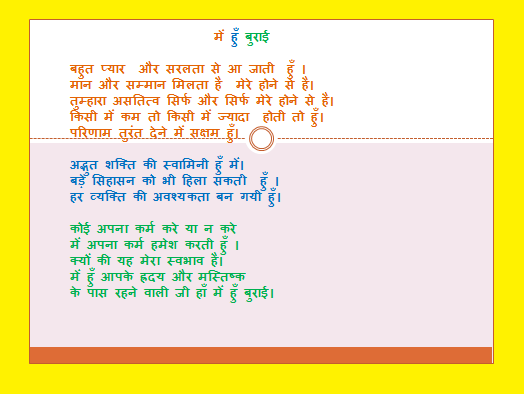 में हूँ बुराई
बहुत प्यार और सरलता से आ जाती हूँ ।
मान और सम्मान मिलता है मेरे होने से है।
तुम्हारा असतित्व सिर्फ और सिर्फ मेरे होने से है।
किसी में कम तो किसी में ज्यादा होती तो हूँ।
परिणाम तुरंत देने में सक्षम हूँ।
अद्भुत शक्ति की स्वामिनी हूँ में।
बड़े सिहासन को भी हिला सकती हूँ ।
हर व्यक्ति की अवश्यकता बन गयी हूँ।
कोई अपना कर्म करे या न करे
में अपना कर्म हमेश करती हूँ ।
क्यों की यह मेरा स्वभाव है।
में हूँ आपके ह्रदय और मस्तिष्क
के पास रहने वाली जी हाँ में हूँ बुराई।